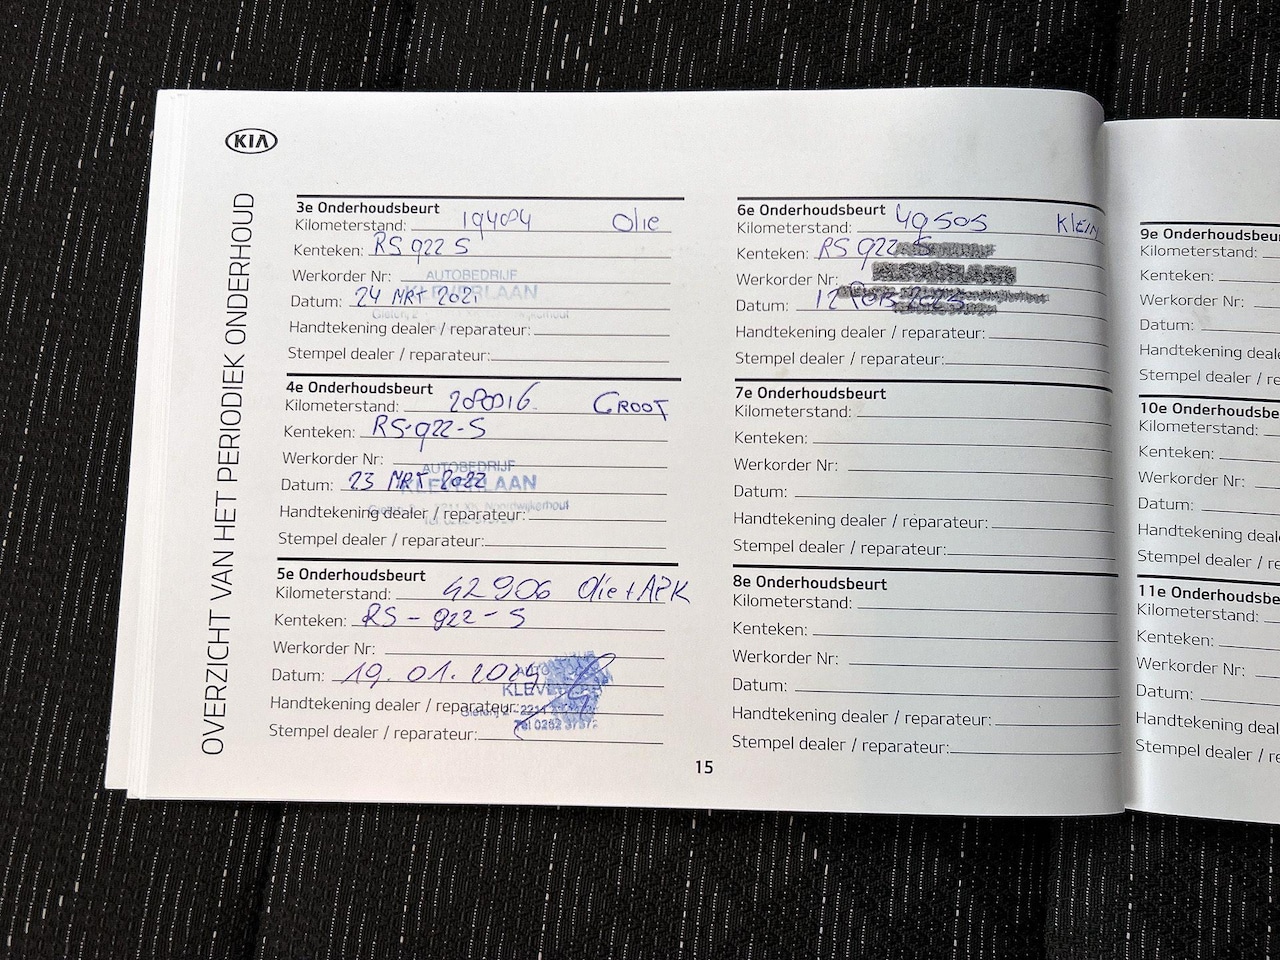 KIA
OVERZICHT VAN HET PERIODIEK ONDERHOUD
3e Onderhoudsbeurt
Kilometerstand: 19404 Olie
Kenteken: RS 922 S
Werkorder Nr:
AUTOBEDRIJF
KLEVERLAAN
Datum: 24 MRT 2021
Handtekening dealer / reparateur:
Stempel dealer / reparateur:
4e Onderhoudsbeurt
Kilometerstand: GROOT
Kenteken: RS-922-S
Werkorder Nr:
AUTOBEDRIJF
KLEVERLAAN
Datum: 23 MRT 2022
Noordwijkerhout
Handtekening dealer / reparateur:
Stempel dealer / reparateur:
5e Onderhoudsbeurt
Kilometerstand: 42906 Olie + APK
Kenteken: RS-922-S
Werkorder Nr:
Datum: 19.01.2024
Handtekening dealer / reparateur:
Stempel dealer / reparateur:
6e Onderhoudsbeurt
Kilometerstand: 49505 KLEIN
Kenteken: RS 922 S
Werkorder Nr:
Datum: 12
Handtekening dealer / reparateur:
Stempel dealer / reparateur:
7e Onderhoudsbeurt
Kilometerstand:
Kenteken:
Werkorder Nr:
Datum:
Handtekening dealer / reparateur:
Stempel dealer / reparateur:
8e Onderhoudsbeurt
Kilometerstand:
Kenteken:
Werkorder Nr:
Datum:
Handtekening dealer / reparateur:
Stempel dealer / reparateur:
15
9e Onderhoudsbeur
Kilometerstand:
Kenteken:
Werkorder Nr:
Datum:
Handtekening deale
Stempel dealer / re
10e Onderhoudsbe
Kilometerstand:
Kenteken:
Werkorder Nr:
Datum:
Handtekening deal
Stempel dealer / re
11e Onderhoudsbe
Kilometerstand:
Kenteken:
Werkorder Nr:
Datum:
Handtekening deal
Stempel dealer / r